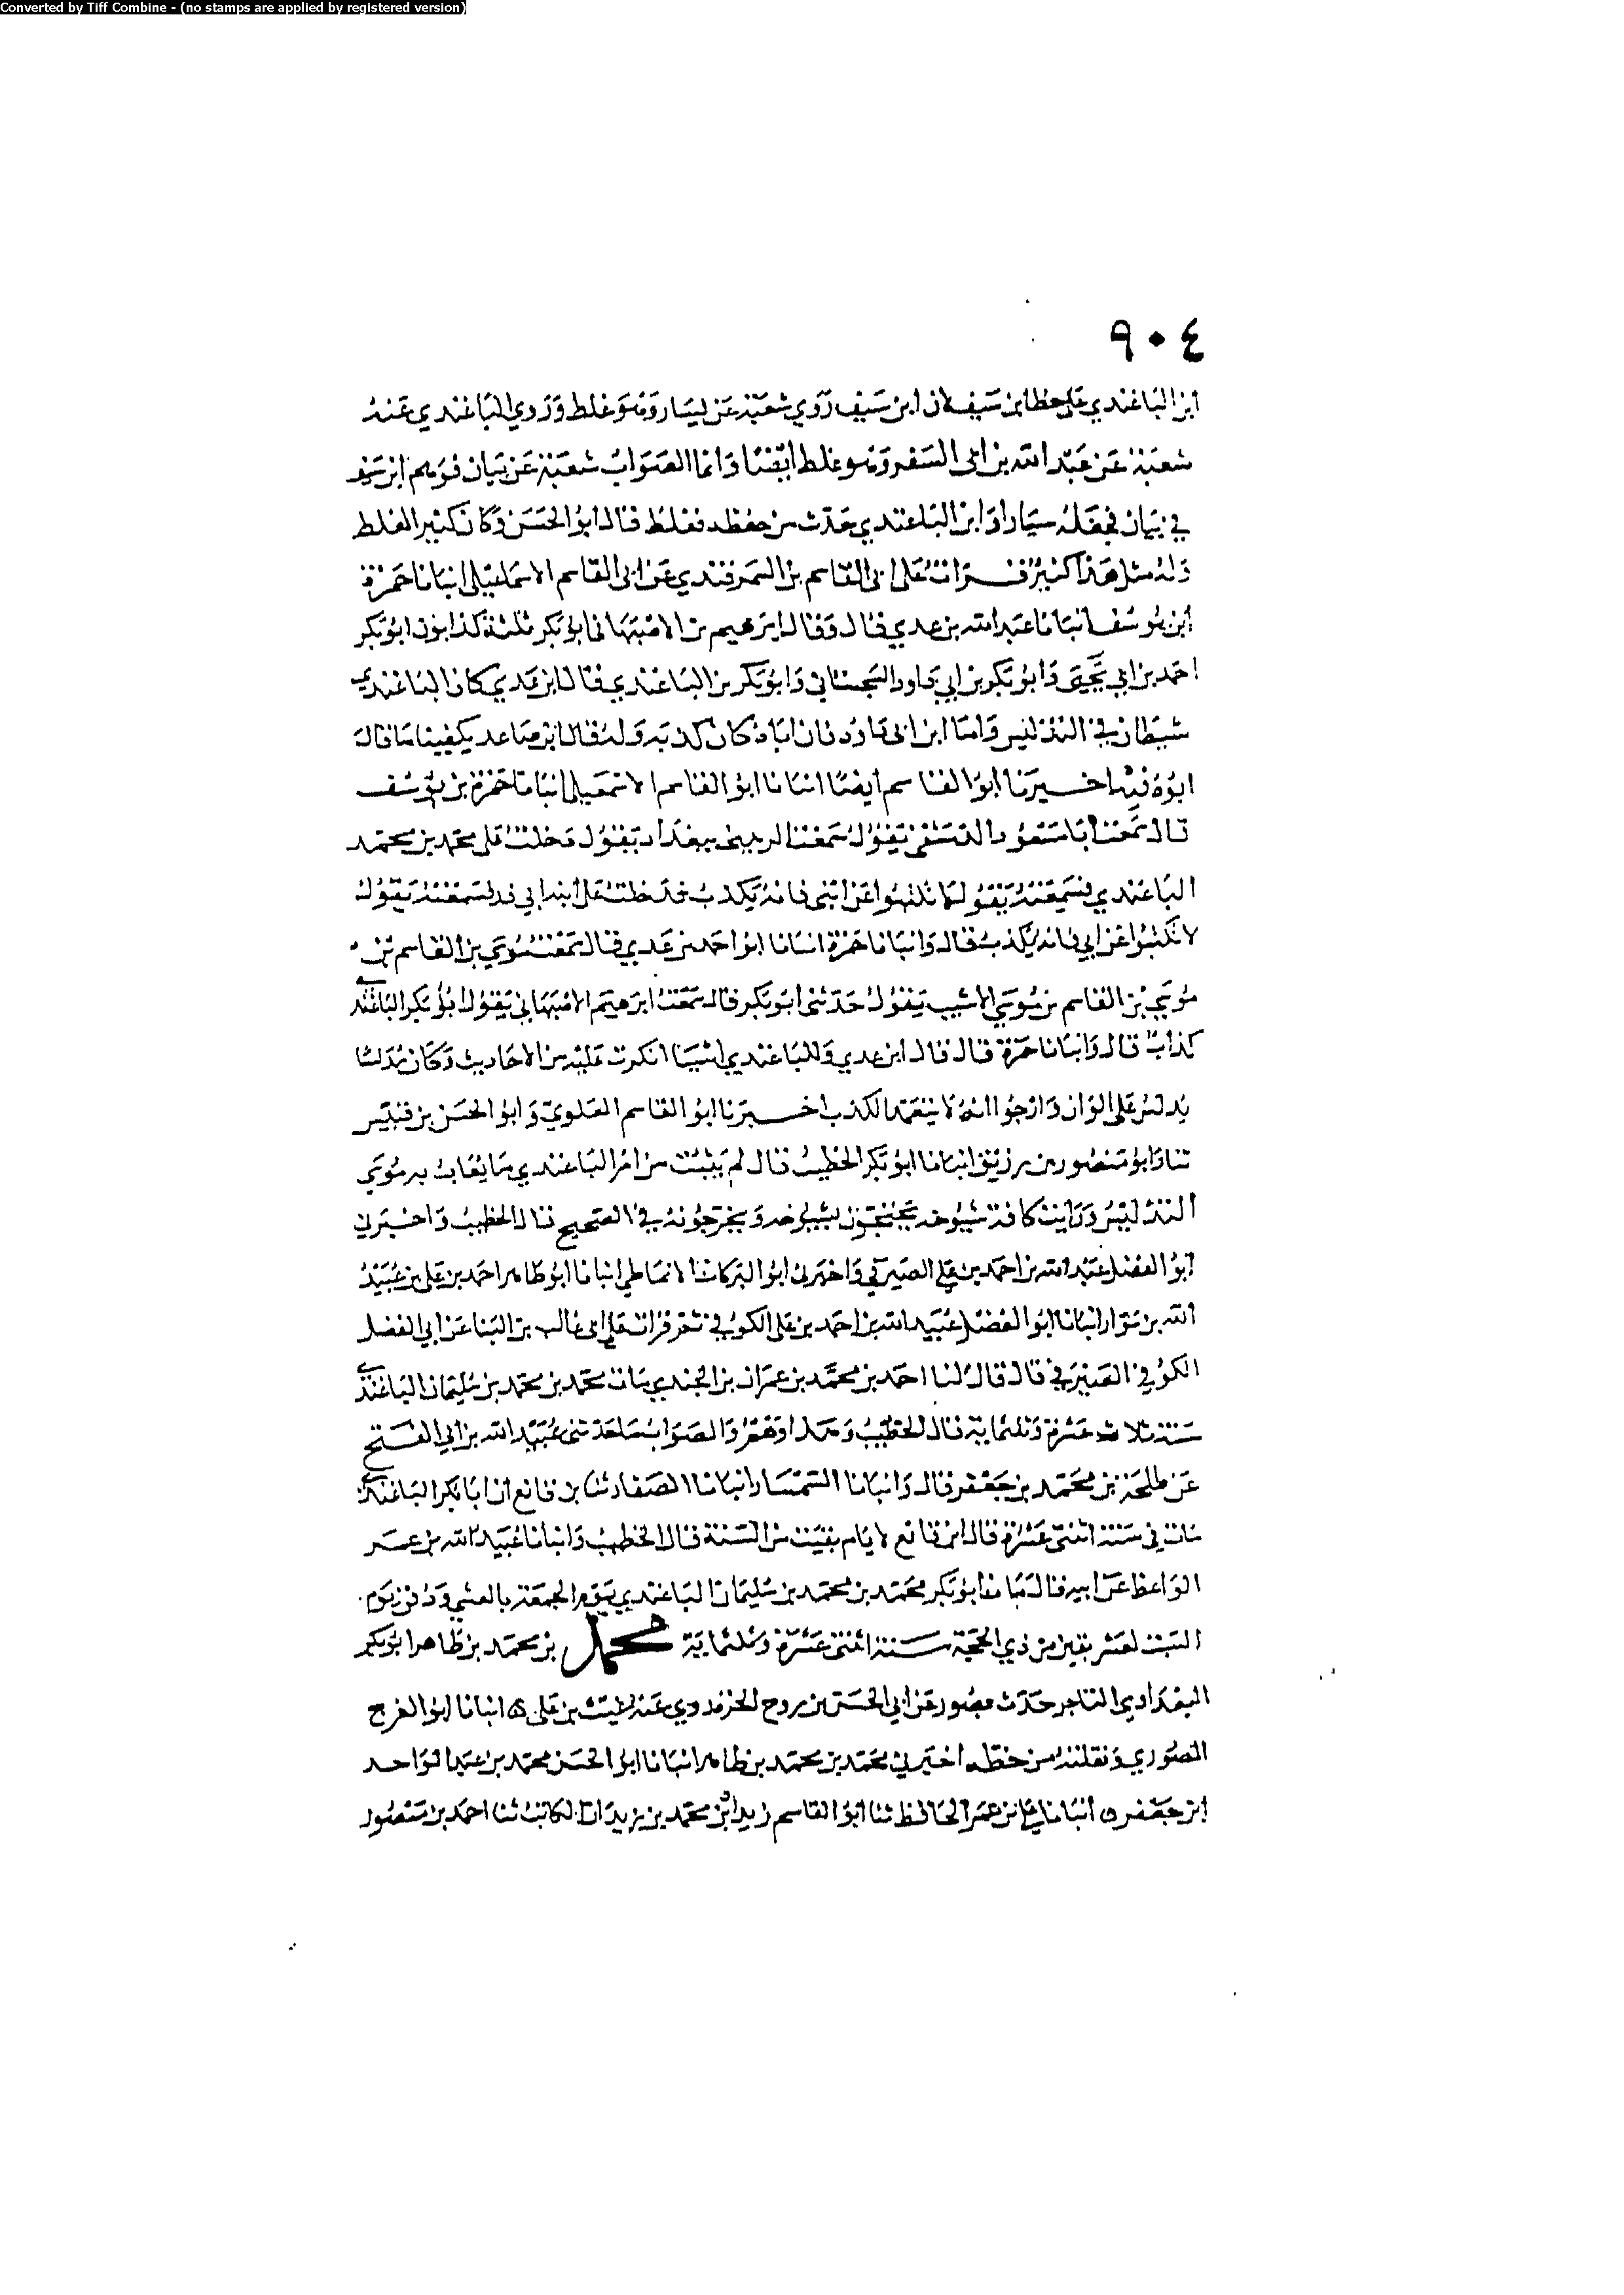 Converted by Tiff Combine - (no stamps are applied by registered version)
٩٠٤
ابن الباغندي على خطا ابن سيف لان ابن سيف روي شعبة عن سيار وهو غلط وروي الباغندي عنه
شعبة عن عبد الله بن ابي السفر وهو غلط ايضا وانما الصواب شعبة عن بيان فوهم ابن سيف
في بيان فجعله سيارا وابن الباغندي حدث من حفظه فغلط قال ابو الحسن وكان كثير الغلط
وله مثل هذا كثير قرات على ابي القاسم بن السمرقندي عن ابي القاسم الاسماعيلي انبانا حمزة
ابن يوسف انبانا عبد الله بن عدي قال وقال ابرهيم بن الاصبهاني ابو بكر ثلثة كذابون ابو بكر
احمد بن ابي يحيى وابو بكر بن ابي داود السجستاني وابو بكر بن الباغندي قال ابن عدي كان الباغندي
شيطان في التدليس واما ابن ابي داود فان اباه كان كذبه ولذ قال ابن صاعد يكفينا ما قال
ابوه فيه اخبرنا ابو القاسم ايضا انبانا ابو القاسم الاسمعيلي انبانا حمزة بن يوسف
قال سمعت ابا مسعود الدمشقي يقول سمعت الزينبي ببغداد يقول دخلت على محمد بن محمد
الباغندي فسمعته يقول لا تكتبوا عن ابني فانه يكذب فدخلت على ابنه ابي ذر فسمعته يقول
لا تكتبوا عن ابي فانه يكذب قال وانبانا حمزة انبانا ابو احمد بن عدي قال سمعت موسي بن القاسم بن
موسي بن القاسم بن موسي الاشيب يقول حدثني ابو بكر قال سمعت ابرهيم الاصبهاني يقول ابو بكر الباغندي
كذاب قال وانبانا حمزة قال قال ابن عدي وللباغندي اشيا انكرت عليه من الاحاديث وكان مدلسا
يدلس على الوان وارجوا انه لا يتعمد الكذب اخبرنا ابو القاسم العلوي وابو الحسن بن قبيس
ثنا وابو منصور بن زريق انبانا ابو بكر الخطيب قال لم يثبت من امر الباغندي ما يعاب به سوي
التدليس ورايت كافة شيوخه يحتجون بشيوخه ويخرجونه في الصحيح قال الخطيب واخبرني
ابو الفضل عبد الله بن احمد بن علي الصيرفي واخبرني ابو البركات الانماطي انبانا ابو طاهر احمد بن علي بن عبيد
الله بن سوار انبانا ابو الفضل عبيد الله بن احمد بن علي الكوفي ثم قرات على ابي غالب بن البنا عن ابي الفضل
الكوفي الصيرفي قال قال لنا احمد بن محمد بن عمران بن الجندي مات محمد بن محمد بن سليمان الباغندي
سنة ثلاث عشرة وثلثماية قال الخطيب وهذا وهم والصواب ما حدثني عبيد الله بن ابي الفتح
عن طلحة بن محمد بن جعفر قال وانبانا السمسار انبانا الصفار ثنا بن قانع ان ابا بكر الباغندي
مات في سنة اثنتي عشرة قال ابن قانع لايام بقيت من السنة قال الخطيب وانبانا عبيد الله بن عمر
الواعظ عن ابيه قال مات ابو بكر محمد بن محمد بن سليمان الباغندي يوم الجمعة بالعشي ودفن يوم
السبت لعشر بقين من ذي الحجة سنة اثنتي عشرة وثلثماية محمد بن محمد بن طاهر ابو بكر
البغدادي التاجر حدث بصور عن ابي الحسن بن روح الحرمدوي عنه غيث بن علي ه انبانا ابو الفرج
الصوري ونقلته من خطه اخبرني محمد بن محمد بن طاهر انبانا ابو الحسن محمد بن عبد الواحد
ابن جعفر ه انبانا علي بن عمر الحافظ ثنا ابو القاسم زيد بن محمد بن يزيد الكاتب ثنا احمد بن منصور